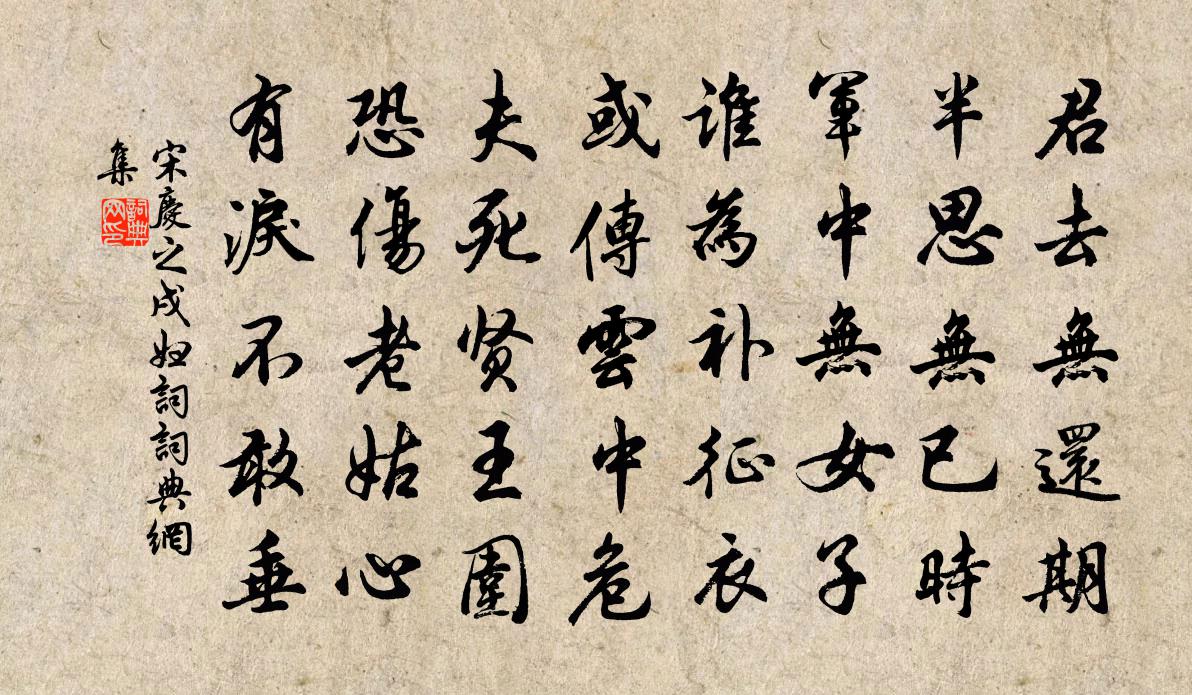 君去無還期
半思無已時
軍中無女子
誰為补征衣
或傳雲中危
夫死贤王圍
恐傷老姑心
有淚不敢垂
宋慶之戍妇詞詞典網
集
詞典网印